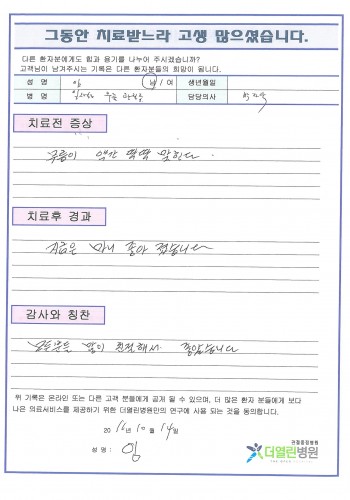 그동안 치료받느라 고생 많으셨습니다.
다른 환자분에게도 힘과 용기를 나누어 주시겠습니까?
고객님이 남겨주시는 기록은 다른 환자분들의 희망이 됩니다.
성 명 임 남 / 여 생년월일
병 명 우측 담당의사
치료전 증상
무릎이 약간 딱딱 맞힌다.
치료후 경과
지금은 마니 좋아 졌습니다
감사와 칭찬
모든분들 많이 친절해서 좋았습니다
위 기록은 온라인 또는 다른 고객 분들에게 공개 될 수 있으며, 더 많은 환자 분들에게 보다
나은 의료서비스를 제공하기 위한 더열린병원만의 연구에 사용 되는 것을 동의합니다.
20 16 년 10 월 14 일
성 명 : 임
관절중점병원
더열린병원